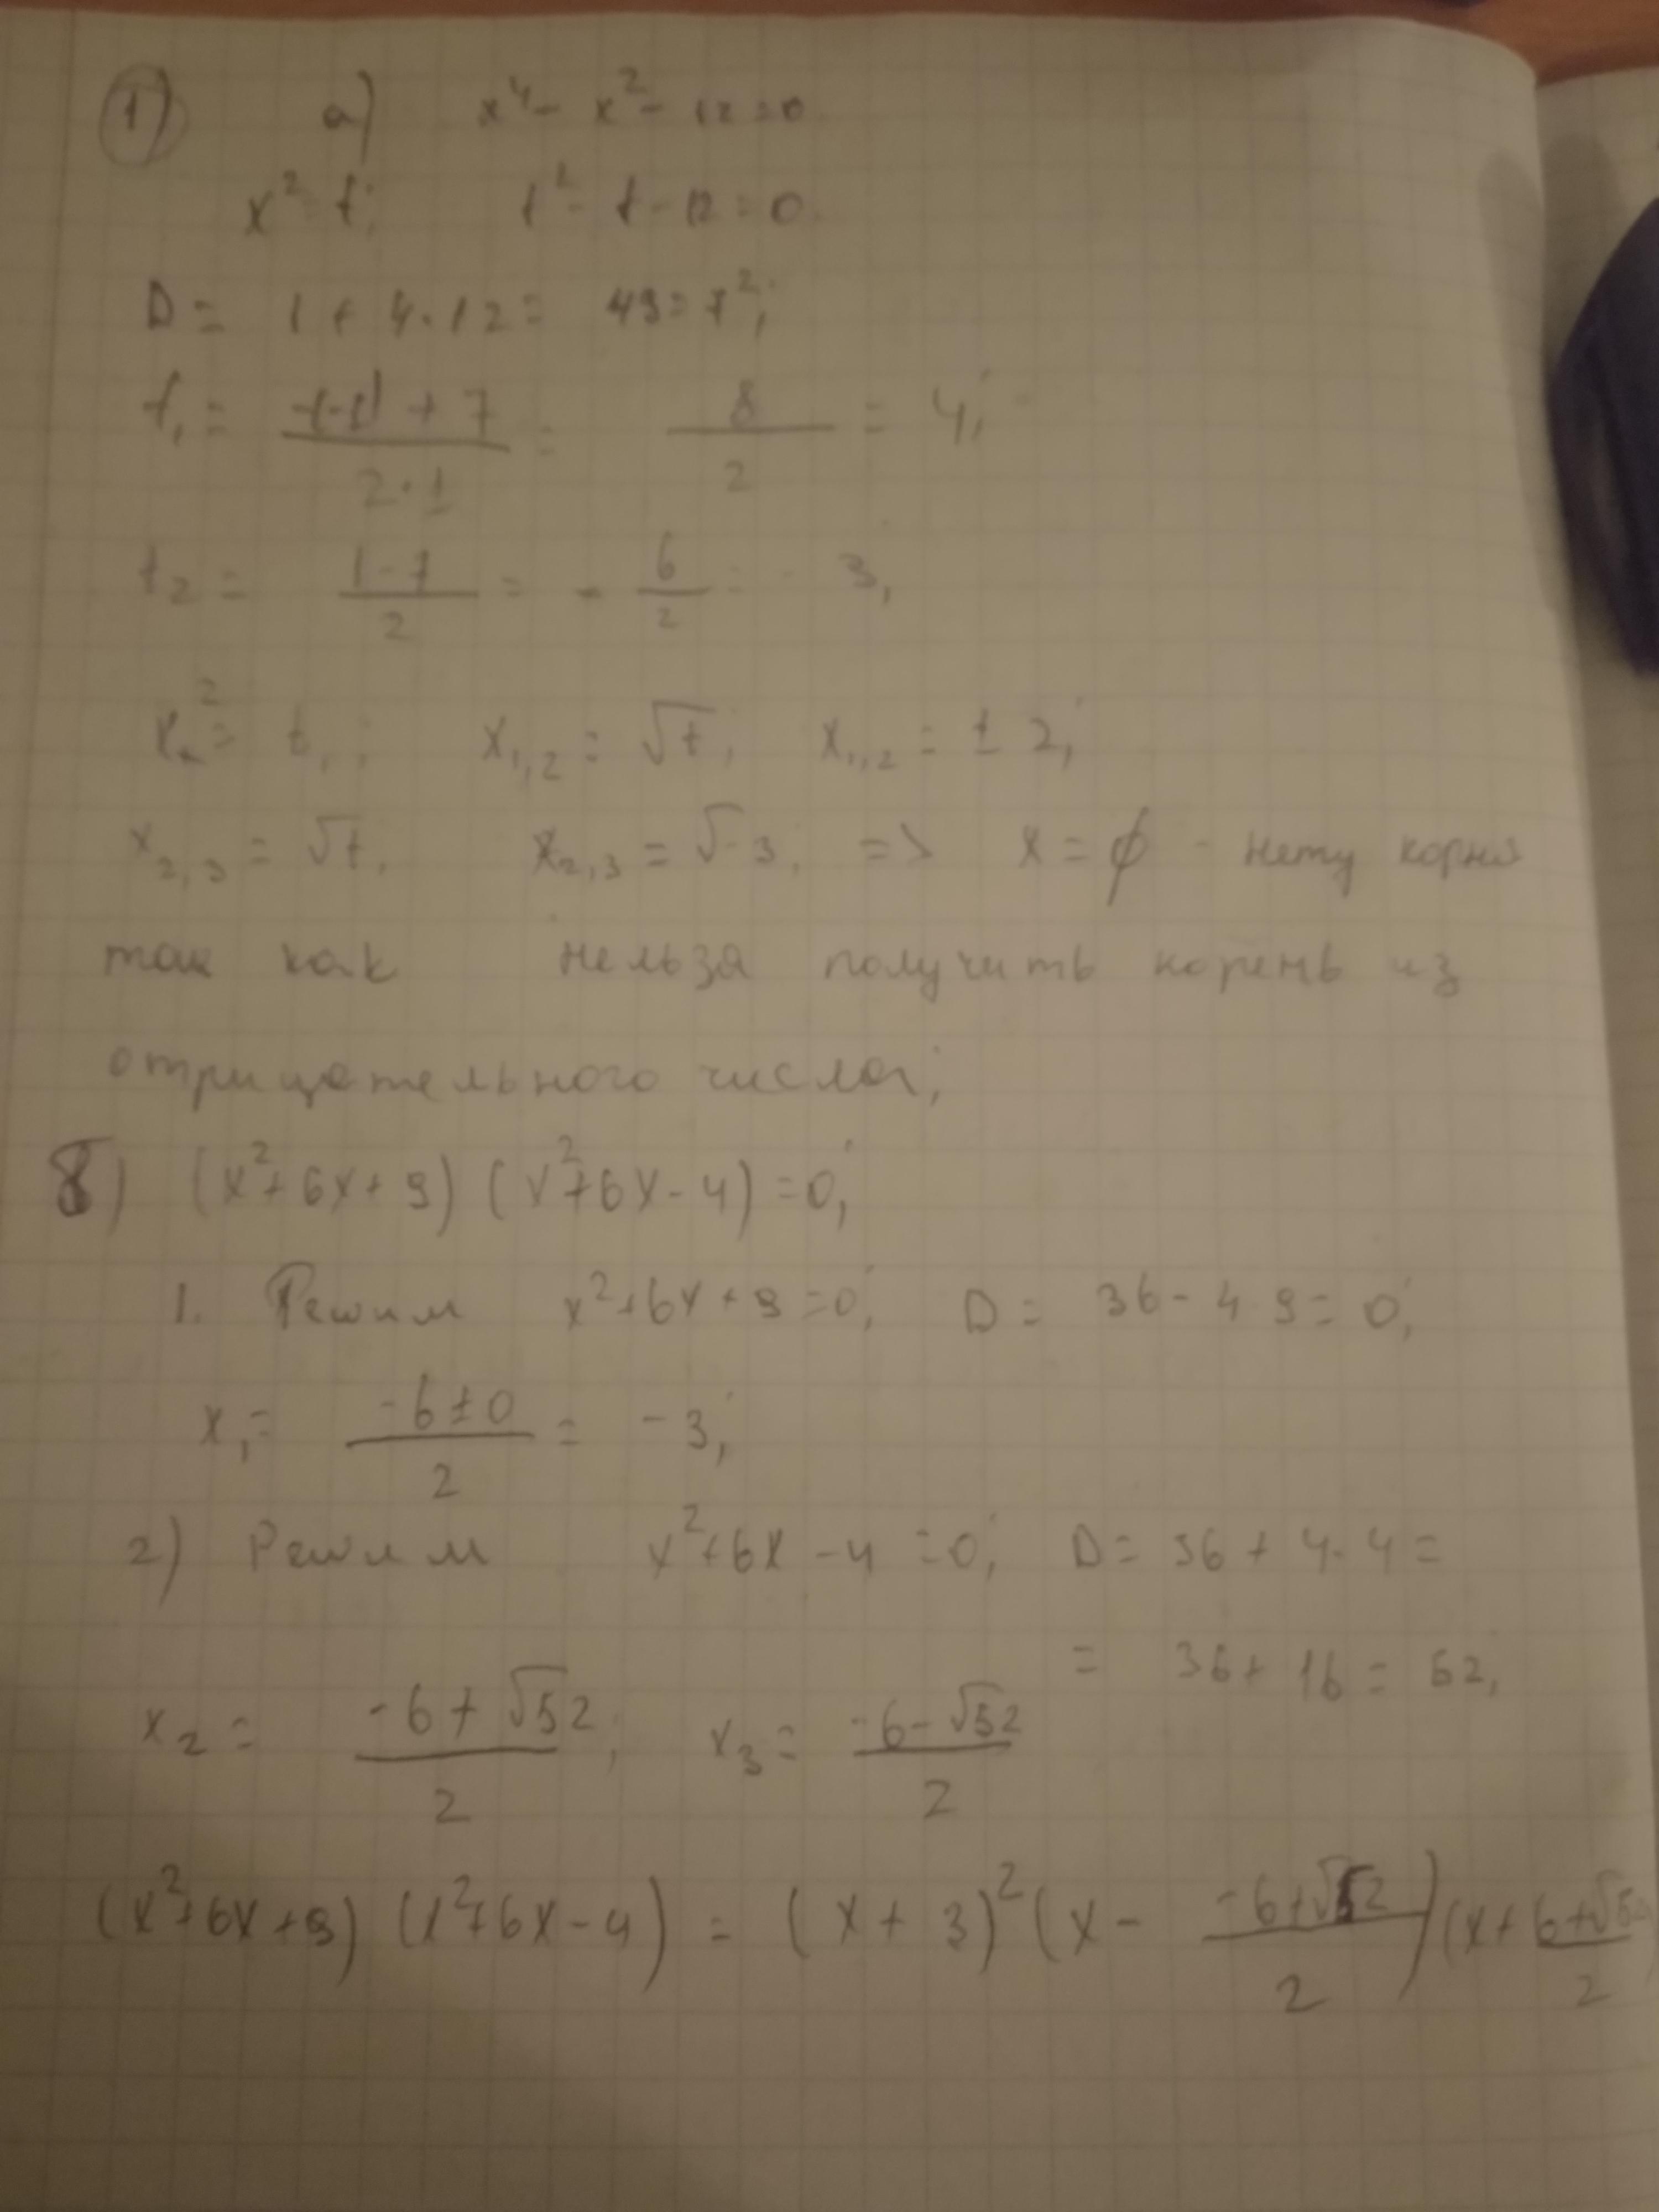 1) а) x⁴ - x² - 12 = 0
x² = t; t² - t - 12 = 0.
D = 1 + 4·12 = 49 = 7²;
t₁ = (-(-1) + 7)/(2·1) = 8/2 = 4;
t₂ = (1-7)/2 = - 6/2 = - 3;
x² = t₁; x₁,₂ = √t; x₁,₂ = ± 2;
x₂,₃ = √t; x₂,₃ = √-3; => x = ∅ - нету корня
так как нельзя получить корень из
отрицательного числа;
б) (x² + 6x + 9) (x² + 6x - 4) = 0;
1. Решим x² + 6x + 9 = 0; D = 36 - 4 9 = 0;
x₁ = (-6 ± 0)/2 = -3;
2) Решим x² + 6x - 4 = 0; D = 36 + 4·4 =
= 36 + 16 = 52;
x₂ = (-6 + √52)/2; x₃ = (-6 - √52)/2
(x² + 6x + 9) (x² + 6x - 4) = (x + 3)² (x - (-6 + √52)/2) (x + (6 + √52)/2)